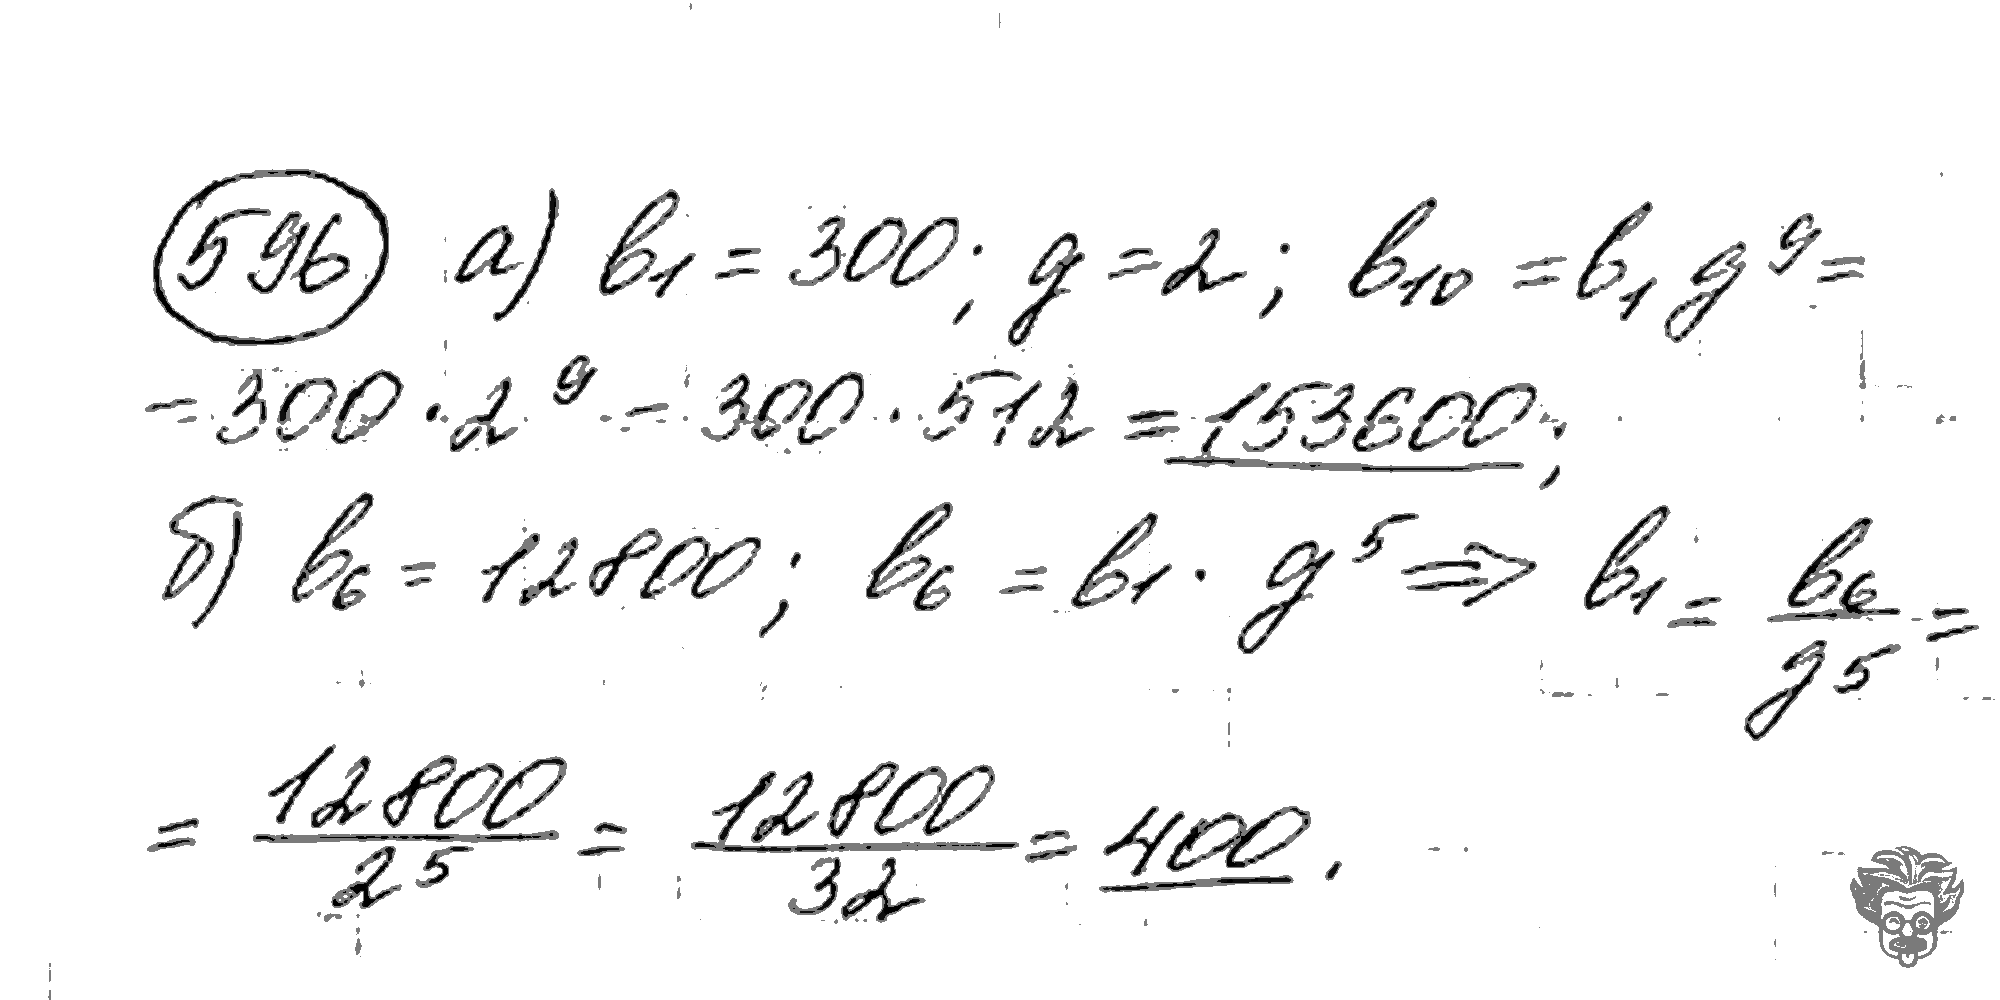 596 а) b₁ = 300; q = 2; b₁₀ = b₁ q⁹ =
= 300 · 2⁹ = 300 · 512 = 153600;
б) b₆ = 12800; b₆ = b₁ · q⁵ ⇒ b₁ = b₆/q⁵ =
= 12800/2⁵ = 12800/32 = 400.